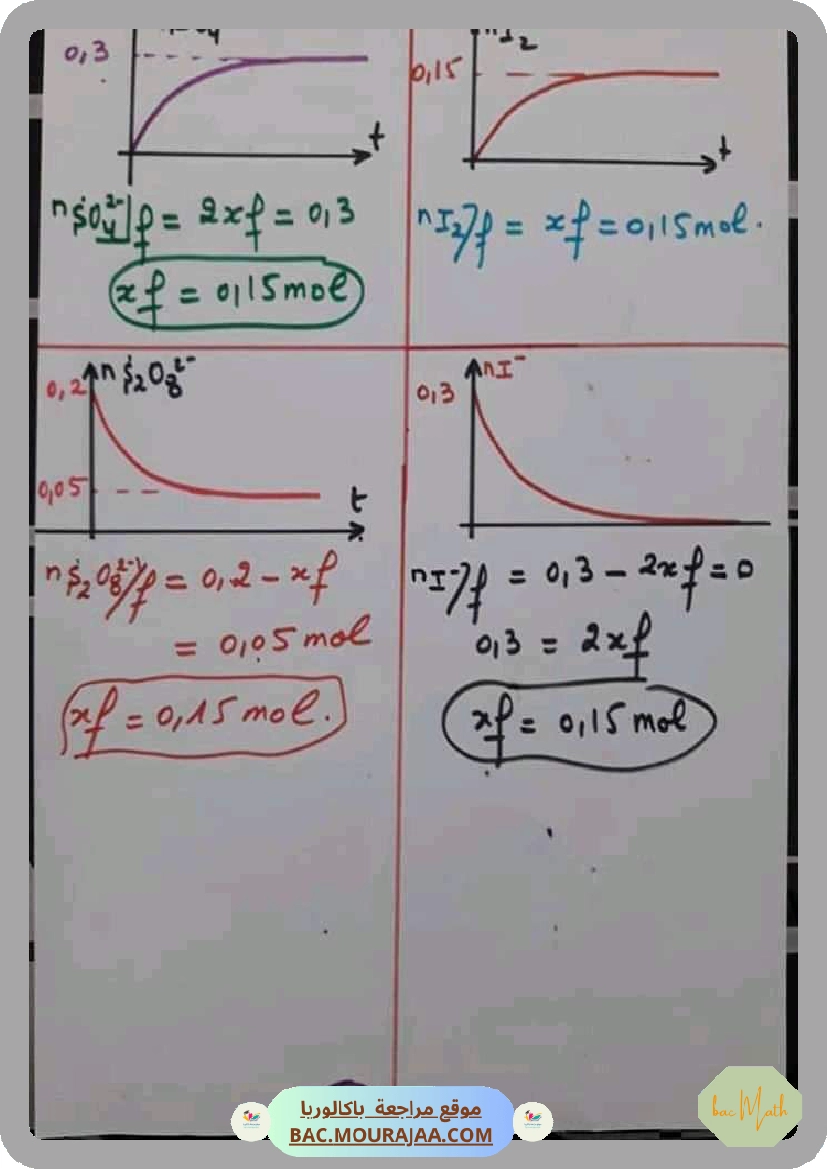 0,3
t
nSO₄²⁻]f = 2xf = 0,3
xf = 0,15 mol
nI₂
0,15
t
nI₂)f = xf = 0,15 mol.
nS₂O₈²⁻
0,2
0,05
t
nS₂O₈²⁻)f = 0,2 - xf
= 0,05 mol
xf = 0,15 mol.
nI⁻
0,3
nI⁻)f = 0,3 - 2xf = 0
0,3 = 2xf
xf = 0,15 mol
موقع مراجعة باكالوريا
BAC.MOURAJAA.COM
bac Math